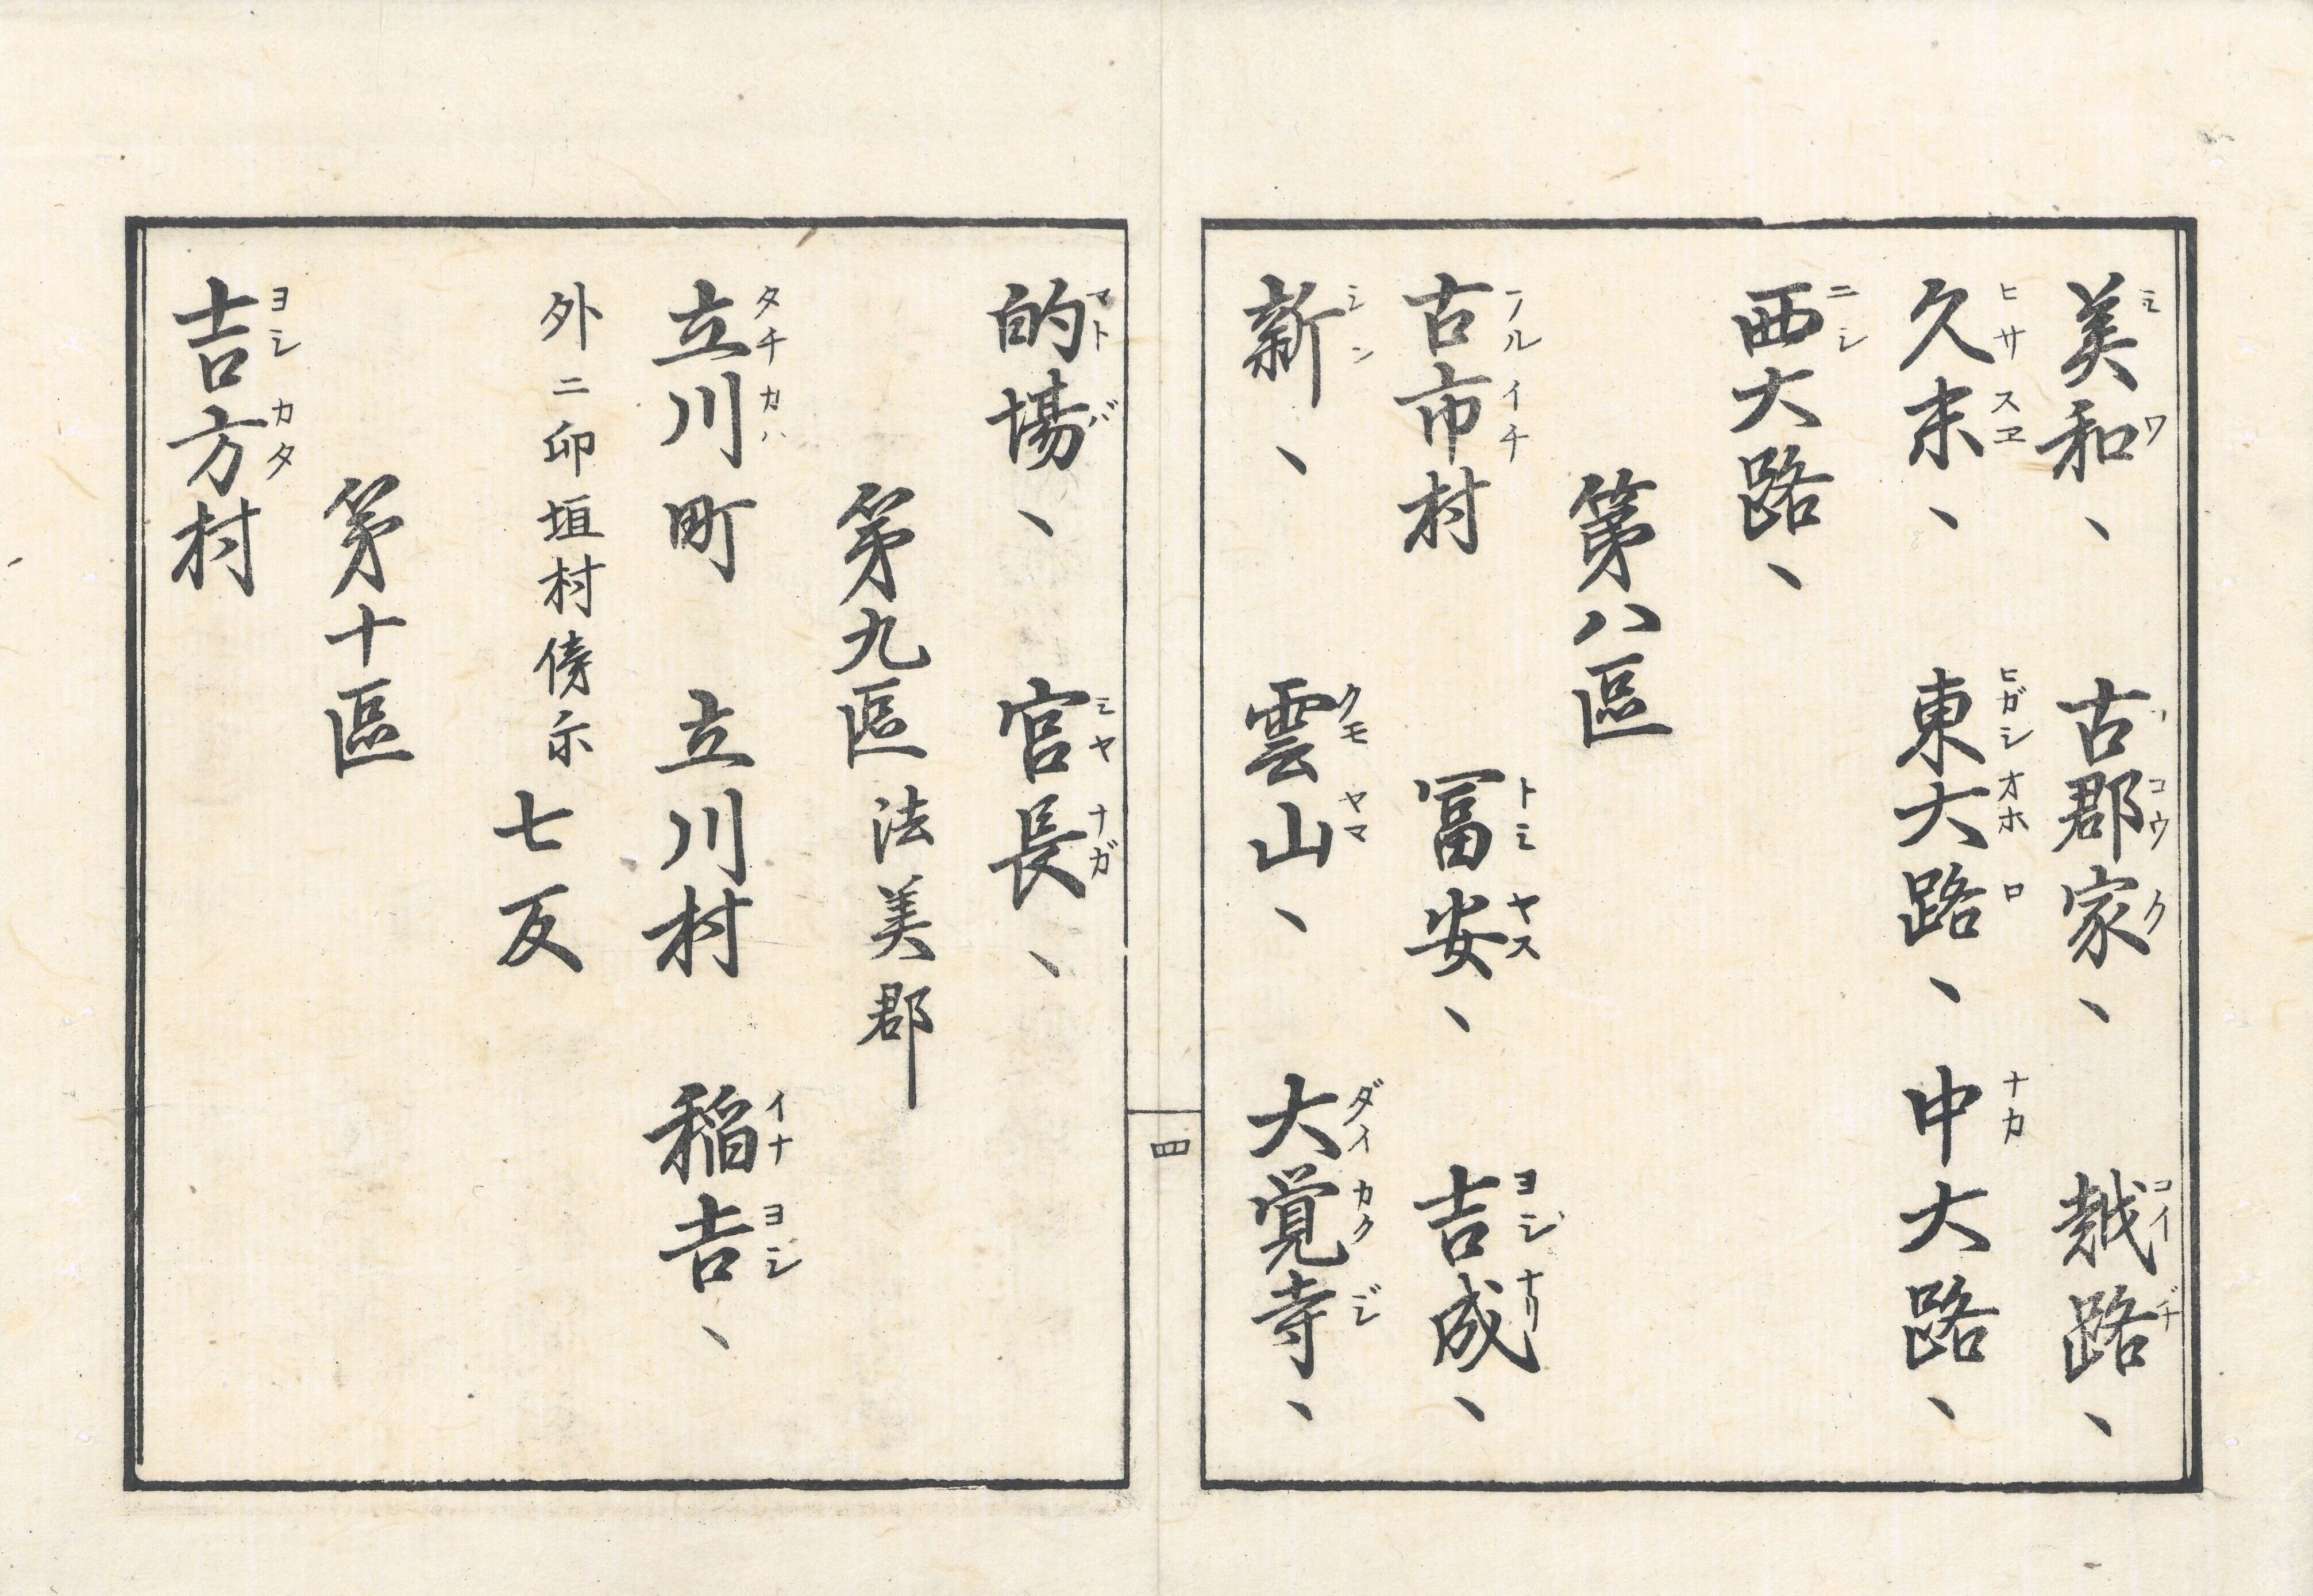 美和、 古郡家、 越路、
久末、 東大路、 中大路、
西大路、
第八區
古市村 冨安、 吉成、
新、 雲山、 大覚寺、
四
的場、 官長、
第九區 法美郡
立川町 立川村 稲吉、
外ニ卯垣村傍示 七反
第十區
吉方村